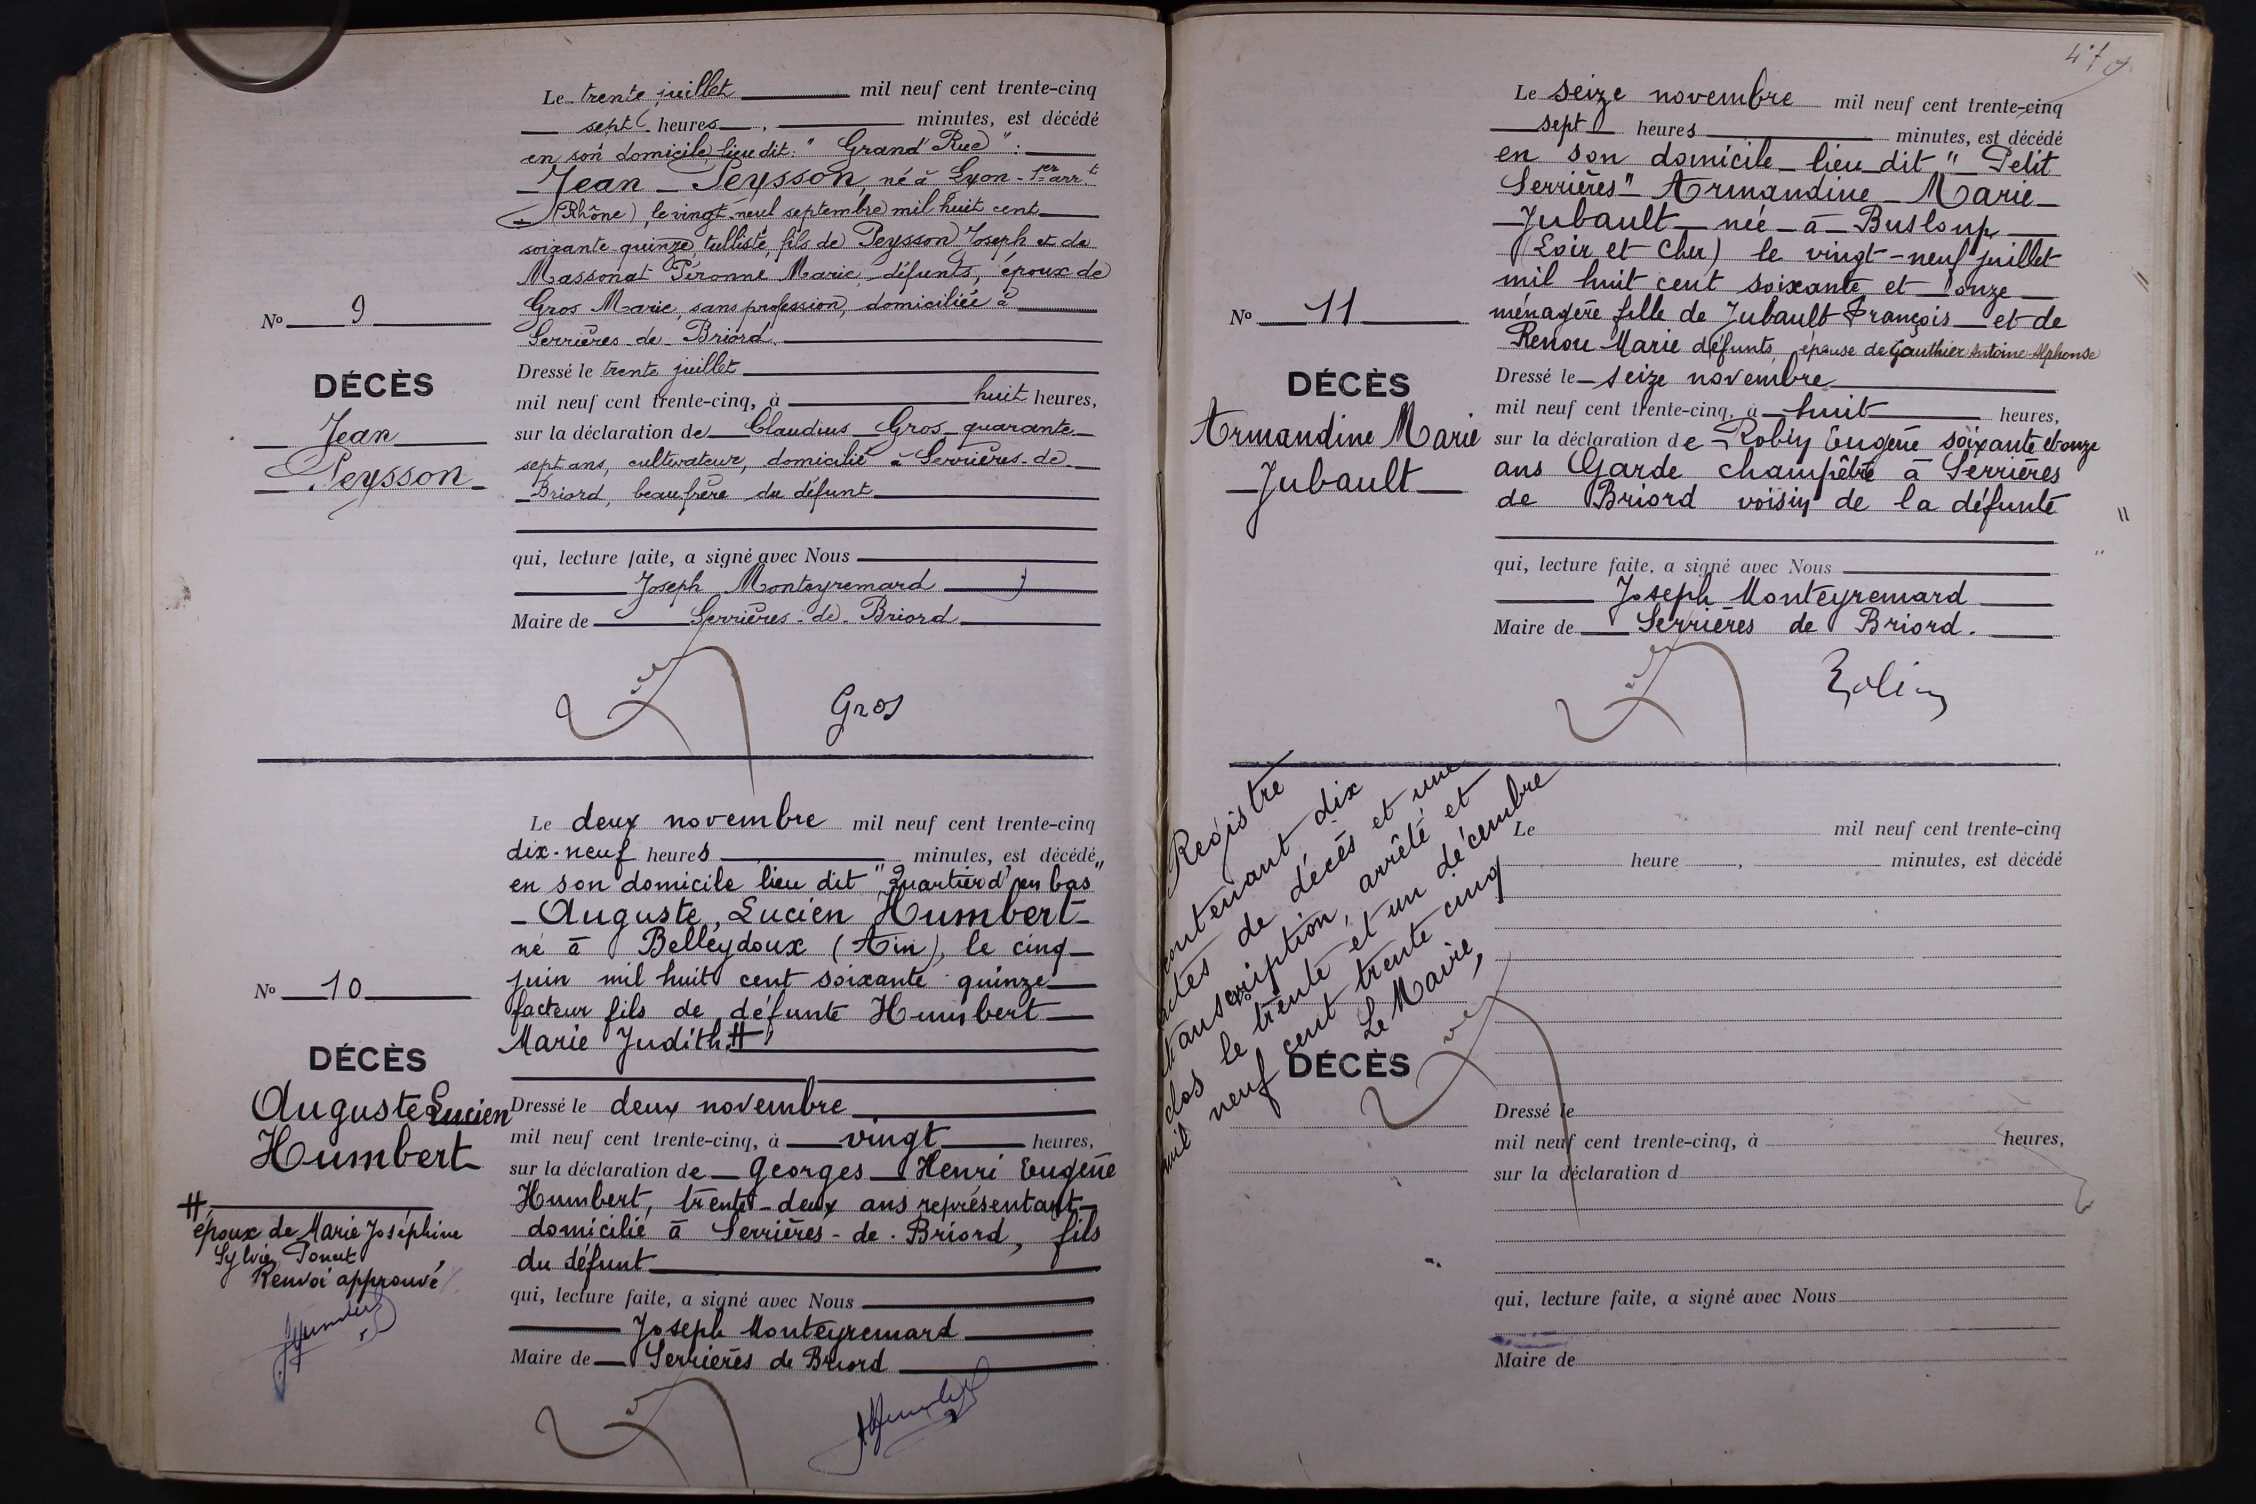 Le trente juillet mil neuf cent trente-cinq
sept heures, minutes, est décédé
en son domicile, lieu dit : " Grand'Rue " :
Jean Peysson, né à Lyon - 1er arrt
(Rhône), le vingt-neuf septembre mil huit cent
soixante quinze, tulliste, fils de Peysson Joseph et de
Massonat Péronne Marie, défunts, époux de
Gros Marie, sans profession, domiciliée à
Serrières-de-Briord.
Dressé le trente juillet
mil neuf cent trente-cinq, à huit heures,
sur la déclaration de Claudius Gros quarante
sept ans, cultivateur, domicilié à Serrières-de-
Briord, beau frère du défunt
qui, lecture faite, a signé avec Nous
Joseph Monteyremard
Maire de Serrières-de-Briord
Gros
No 9
DÉCÈS
Jean
Peysson
Le deux novembre mil neuf cent trente-cinq
dix-neuf heures minutes, est décédé
en son domicile lieu dit "Quartier d'en bas"
Auguste, Lucien Humbert
né à Belleydoux (Ain), le cinq
juin mil huit cent soixante quinze
facteur fils de défunte Humbert
Marie Judith. #
Dressé le deux novembre
mil neuf cent trente-cinq, à vingt heures,
sur la déclaration de Georges Henri Eugène
Humbert, trente-deux ans représentant
domicilié à Serrières-de-Briord, fils
du défunt
qui, lecture faite, a signé avec Nous
Joseph Monteyremard
Maire de Serrières de Briord
No 10
DÉCÈS
Auguste Lucien
Humbert
#
époux de Marie Joséphine
Sylvie Poncet
Renvoi approuvé
Le seize novembre mil neuf cent trente-cinq
sept heures minutes, est décédé
en son domicile lieu dit " Petit
Serrières" Armandine Marie
Jubault née à Busloup
(Loir et Cher) le vingt-neuf juillet
mil huit cent soixante et onze
ménagère fille de Jubault François et de
Renou Marie défunts, épouse de Gauthier Antoine Alphonse
Dressé le seize novembre
mil neuf cent trente-cinq, à huit heures,
sur la déclaration de Robin Eugène soixante et onze
ans Garde champêtre à Serrières
de Briord voisin de la défunte
qui, lecture faite, a signé avec Nous
Joseph Monteyremard
Maire de Serrières de Briord.
Robin
No 11
DÉCÈS
Armandine Marie
Jubault
Registre
contenant dix
actes de décès et une
transcription, arrêté et
clos le trente et un décembre
mil neuf cent trente cinq
Le Maire,
DÉCÈS
Le mil neuf cent trente-cinq
heure, minutes, est décédé
Dressé le
mil neuf cent trente-cinq, à heures,
sur la déclaration d
qui, lecture faite, a signé avec Nous
Maire de